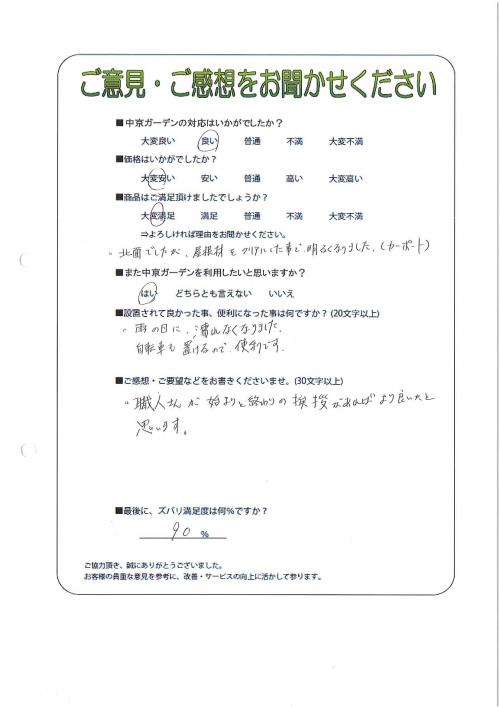 ご意見・ご感想をお聞かせください
■中京ガーデンの対応はいかがでしたか？
大変良い 良い 普通 不満 大変不満
■価格はいかがでしたか？
大変安い 安い 普通 高い 大変高い
■商品はご満足頂けましたでしょうか？
大変満足 満足 普通 不満 大変不満
⇒よろしければ理由をお聞かせください。
。北面でしたが、屋根材をクリアにした事で、明るくなりました。(カーポート)
■また中京ガーデンを利用したいと思いますか？
はい どちらとも言えない いいえ
■設置されて良かった事、便利になった事は何ですか？(20文字以上)
。雨の日に、濡れなくなりました。
自転車も置けるので便利です。
■ご感想・ご要望などをお書きくださいませ。(30文字以上)
。職人さんが始まりと終わりの挨拶があればより良いたと
思います。
■最後に、ズバリ満足度は何％ですか？
90 %
ご協力頂き、誠にありがとうございました。
お客様の貴重な意見を参考に、改善・サービスの向上に活かして参ります。